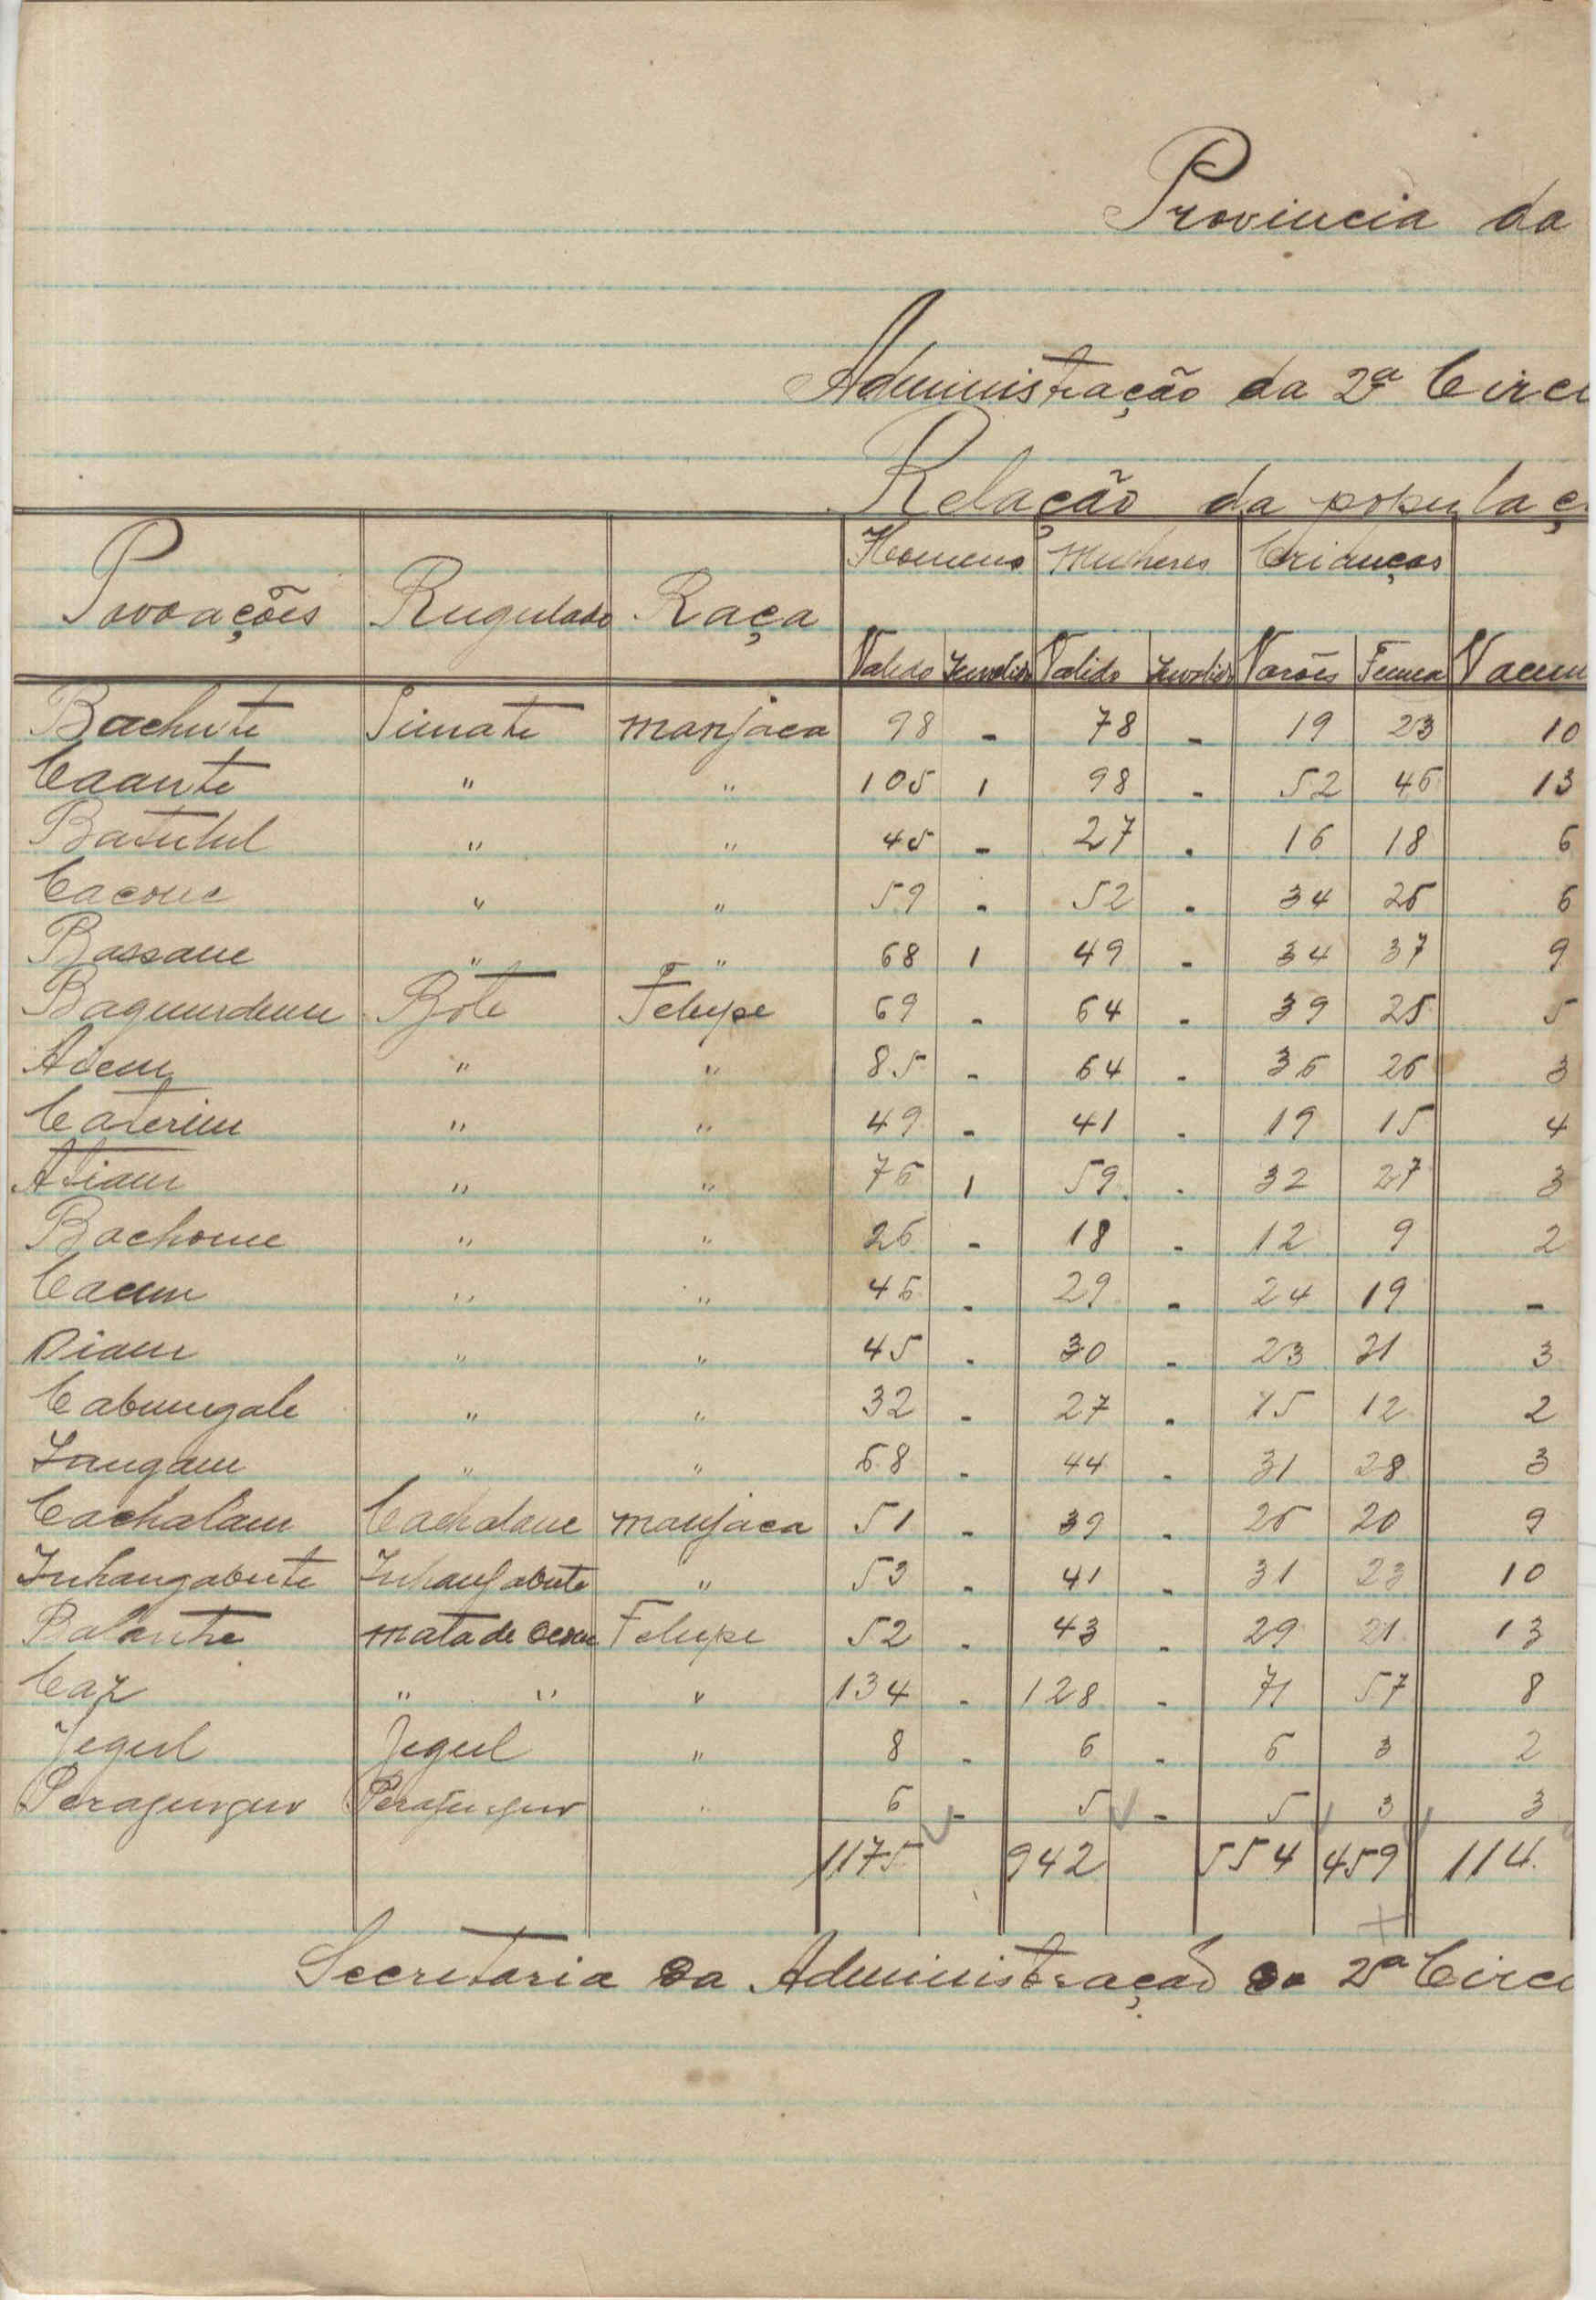 Provincia da
Administração da 2ª Circu
Relação da populaç
Povoações Regulado Raça Homens Mulheres Crianças
Valido Invalido Valido Invalido Varões Femea Vacum
Bachute Timate manjaca 98 - 78 - 19 23 10
Caante " " 105 1 98 - 52 46 13
Batulul " " 45 - 27 - 16 18 6
Caconc " " 59 - 52 - 34 26 6
Bassane " " 68 1 49 - 34 37 9
Bote Felupe 69 - 64 - 39 28 5
" " 85 - 64 - 36 26 3
Caterim " " 49 - 41 - 19 15 4
Atiam " " 76 1 59 - 32 27 3
Bachome " " 26 - 18 - 12 9 2
Caeum " " 46 - 29 - 24 19 -
Diam " " 45 - 30 - 23 21 3
Cabungale " " 32 - 27 - 15 12 2
Jangam " " 68 - 44 - 31 28 3
Cachalam Cachalam manjaca 51 - 39 - 26 20 9
Inhangabute Inhangabute " 53 - 41 - 31 23 10
Balanthe mata de Felupe 52 - 43 - 29 21 13
Caz " " " 134 - 128 - 71 57 8
Jegul Jegul " 8 - 6 - 6 3 2
" 6 - 5 - 5 3 3
1175 942 554 459 114
Secretaria da Administração da 2ª Circu